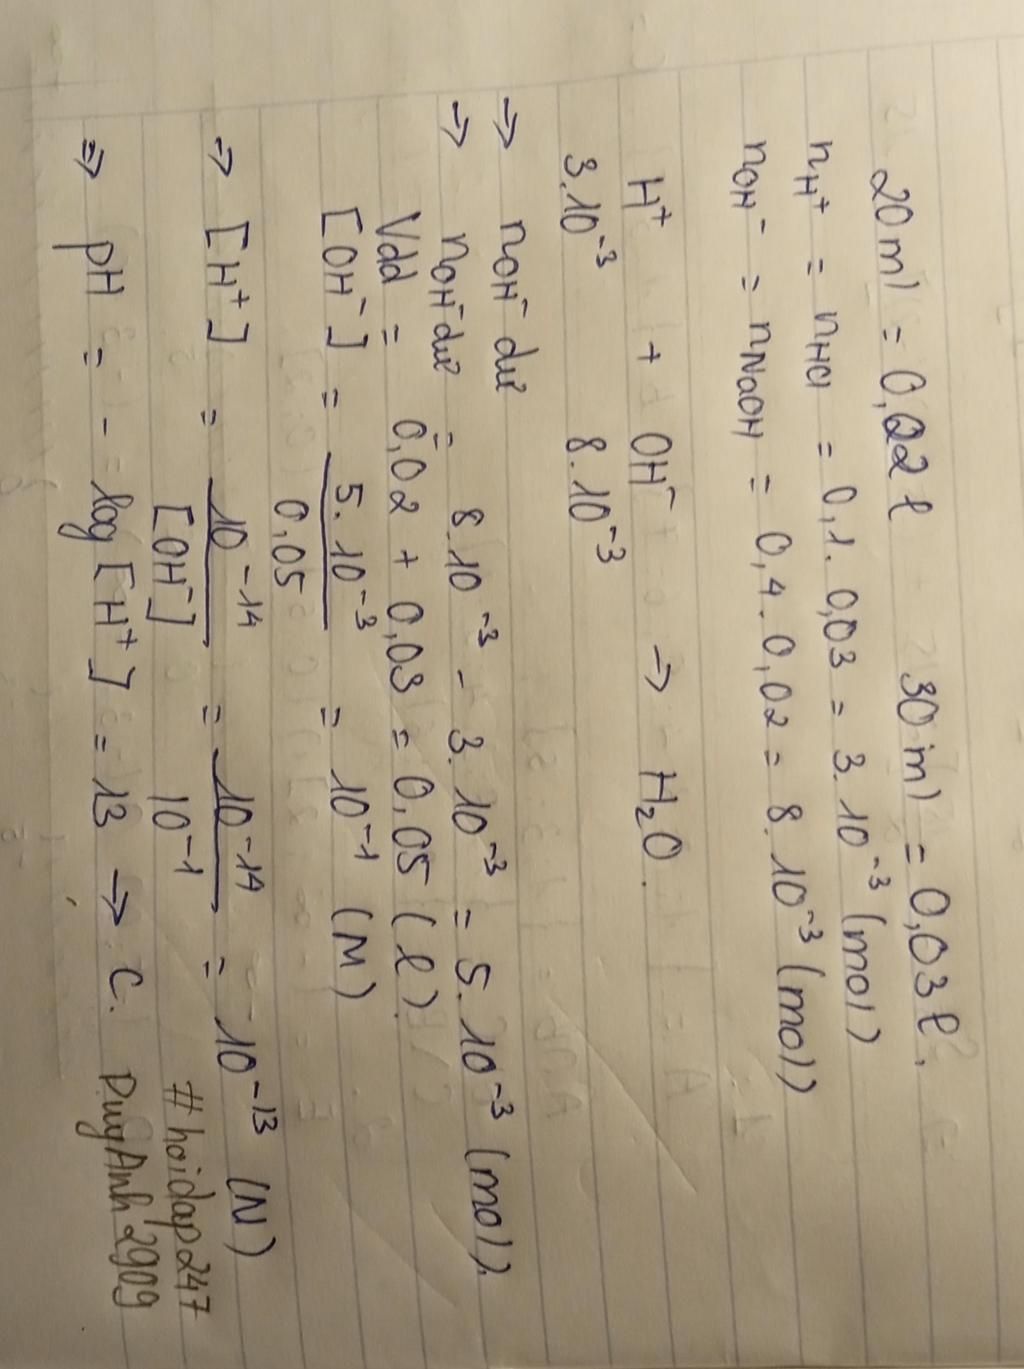 20ml = 0,02 l 30ml = 0,03 l.
nH⁺ = nHCl = 0,1. 0,03 = 3. 10⁻³ (mol)
nOH⁻ = nNaOH = 0,4. 0,02 = 8. 10⁻³ (mol)
H⁺ + OH⁻ → H₂O.
3.10⁻³ 8.10⁻³
→ nOH⁻ dư
→ nOH⁻ dư = 8.10⁻³ - 3.10⁻³ = 5. 10⁻³ (mol).
Vdd = 0,02 + 0,03 = 0,05 (l).
[OH⁻] = 5.10⁻³ / 0,05 = 10⁻¹ (M)
⇒ [H⁺] = 10⁻¹⁴ / [OH⁻] = 10⁻¹⁴ / 10⁻¹ = 10⁻¹³ (N)
#hoidap247
⇒ pH = - log [H⁺] = 13 → C. DuyAnh2909